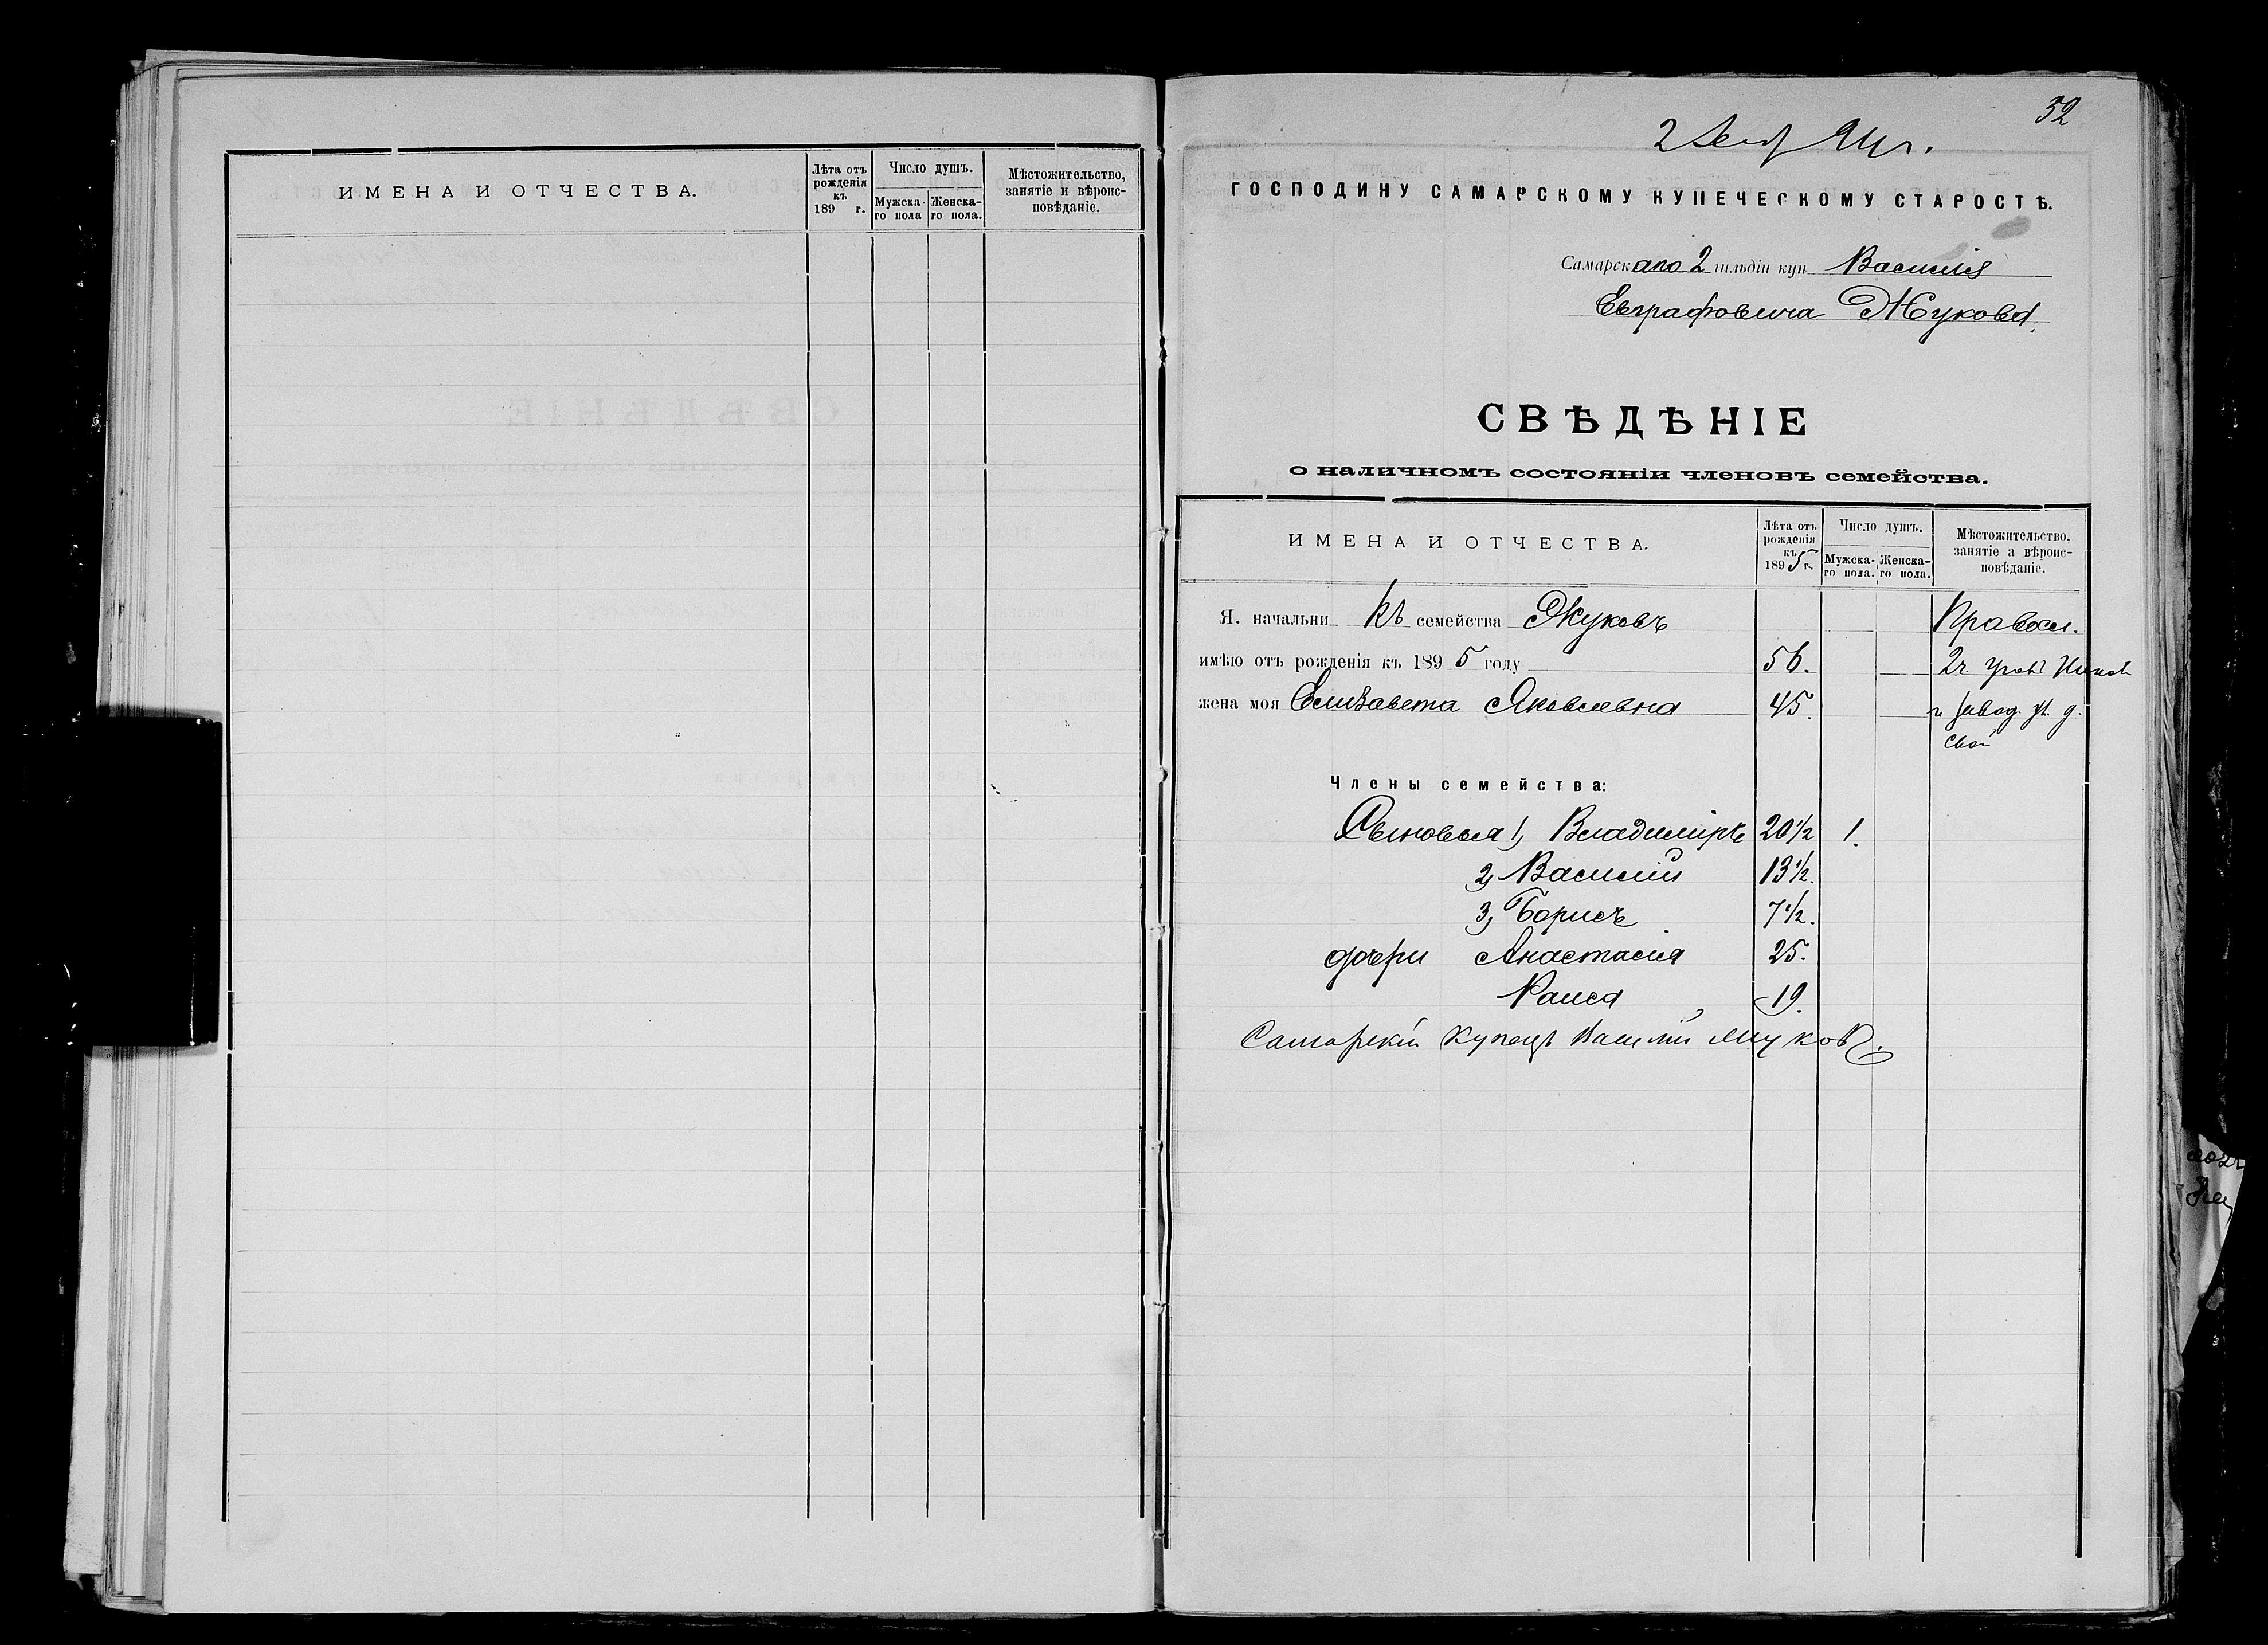 ИМЕНА И ОТЧЕСТВА.
Лѣта отъ рожденія къ 189 г.
Число душъ.
Мужска-го пола
Женска-го пола.
Мѣстожительство, занятіе и вѣроис-повѣданіе.
32
2
ГОСПОДИНУ САМАРСКОМУ КУПЕЧЕСКОМУ СТАРОСТѢ.
Самарскаго 2 гильдіи куп Василія
Евграфовича Жукова
СВѢДѢНІЕ
о наличномъ состояніи членовъ семейства.
ИМЕНА И ОТЧЕСТВА.
Лѣта отъ рожденія къ 1895 г.
Число душъ.
Мужска-го пола.
Женска-го пола.
Мѣстожительство, занятіе а вѣроис-повѣданіе.
Я. начальникъ семейства Жуковъ Правосл.
имѣю отъ рожденія къ 1895 году 56. 2 ч.
жена моя Елизавета Яковлевна 45. и завод. д.
свой
Члены семейства:
Сыновья 1, Владиміръ 20 1/2 1.
2, Василій 13 1/2.
3, Борисъ 7 1/2.
дочери Анастасія 25.
Раиса 19.
Самарскій Купецъ Василій Жуковъ.